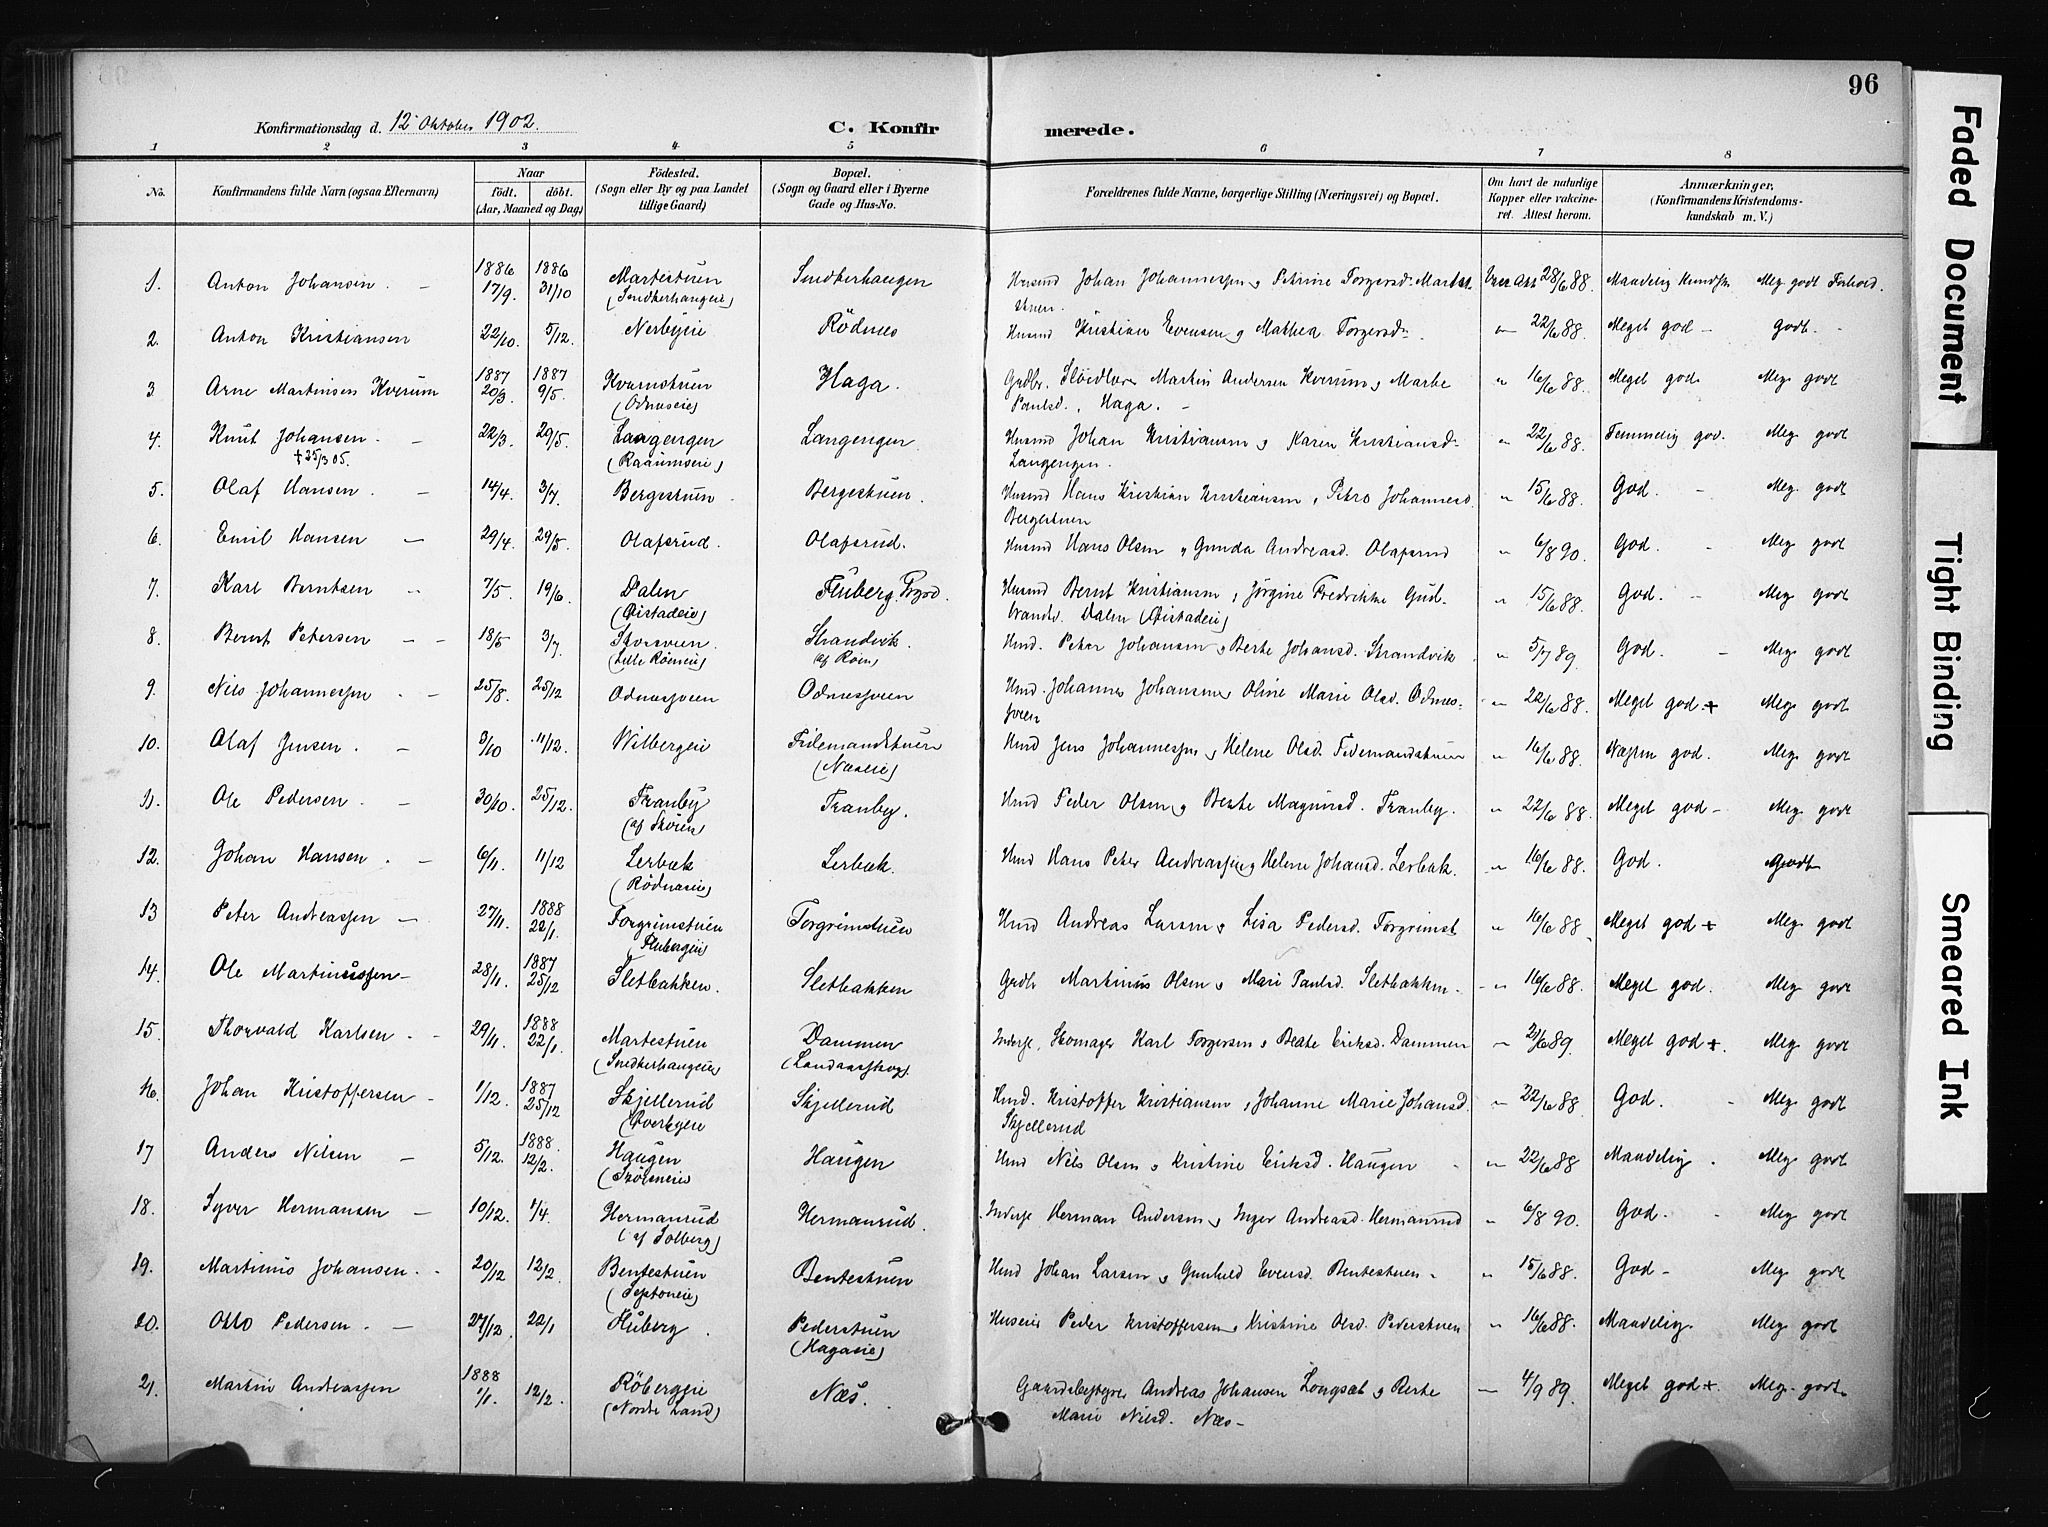 96
Konfirmationsdag d. 12 Oktober 1902.
C. Konfirmerede.
1 2 3 4 5 6 7 8
No. Konfirmandens fulde Navn (ogsaa Efternavn) Naar født. døbt. (Aar, Maaned og Dag) Födested. (Sogn eller By og paa Landet tillige Gaard) Bopæl. (Sogn og Gaard eller i Byerne Gade og Hus-No. Forældrenes fulde Navne, borgerlige Stilling (Næringsvei) og Bopæl. Om havt de naturlige Kopper eller vakcineret. Attest herom. Anmærkninger, (Konfirmandens Kristendomskundskab m. V.)
1. Anton Johansen 1886 17/9. 1886 31/10 Martestuen Husmd Johan Johannessen Petrine Torgersd. 28/6 88. Maadelig Meg godt Forhold.
2. Anton Kristiansen 22/10. 5/12. Nerbyeie Rödnes Husmd Kristian Evensen og Mathea Torgersd. 22/6 88. Meget god Godt.
3 Arne Martinsen Kverum 1887 20/3. 1887 9/5. Kvernstuen (Odneseie) Haga. Gudbr. Martin Andersen Kverum og Marte Paulsd. Haga. 16/6 88. Meget god. Meg godt
4. Knut Johansen. 22/3. 29/5. Langengen (Raaumseie) Langengen. Husmd Johan Kristiansen og Karen Kristiansd. Langengen. 22/6 88. Temmelig god. Meg godt
+ 25/3 05.
5. Olaf Hansen. 14/4. 3/7. Bergestuen Bergestuen. Husmd Hans Kristian Kristiansen, Petra Johannesd. Bergestuen 15/6 88. God. Meg godt
6. Emil Hansen 29/4. 29/5. Olafsrud. Olafsrud. Husmd Hans Olsen og Gunda Andreasd. Olafsrud 6/8 90. God. Meg godt
7. Karl Berntsen 7/5. 19/6. Dalen Fluberg Husmd Bernt Kristiansen, Jørgine Fredrikke Gudbrandsd. Dalen 15/6 88. God. Meg godt
8. Bernt Petersen 18/5 3/7. (Lille Röineie) Strandvik (af Röin) Hmd. Peter Johansen, Berte Johansd. Strandvik 5/7 89. God. Meg godt
9. Nils Johannessen 25/8. 25/12 Odnessveen Odnessveen Hmd. Johannes Johansen Oline Marie Olsd. Odnessveen 22/6 88. Meget god + Meg godt
10. Olaf Jensen. 3/10 11/12. Wilbergeie (Næseie) Hmd Jens Johannessen og Helene Olsd. 16/6 88. god. Meg godt
11. Ole Pedersen. 30/10. 25/12. Tranby Tranby. Hmd Peder Olsen og Berte Magnusd. Tranby. 22/6 88. Meget god Meg godt
12. Johan Hansen. 6/11. 11/12 Lerbæk (Rödneseie) Lerbæk. Hmd Hans Peter Andreassen og Helene Johansd. Lerbæk. 16/6 88. God. Godt
13 Peter Andreassen 27/11. 1888 22/1. Torgrimstuen (Flubergeie) Torgrimstuen Hmd Andreas Larsen og Lisa Pedersd. Torgrimst 16/6 88. Meget god + Meg godt
14. Ole Martinussen 28/11. 1887 25/12 Sletbakken. Sletbakken Gudbr Martinus Olsen og Mari Paulsd. Sletbakken. 16/6 88. Meget god. Meg godt
15. Thorvald Karlsen 29/11. 1888 22/1. Martestuen Dammen (Landaasskog) Inderst, Skomager Karl Torgersen og Beate Eriksd. Dammen 89. Meget god +. Meg godt
16. Johan Kristoffersen 1/12. 1887 25/12 Skjellerud Skjellerud Hmd. Kristoffer Kristiansen, Johanne Marie Johansd. Skjellerud 22/6 88. God. Meg godt
17 Anders Nilsen 5/12. 1888. 12/2. Haugen Haugen Hmd Nils Olsen og Kristine Eriksd. Haugen 22/6 88 Maadelig. Meg godt
18. Syver Hermansen 10/12. Hermanrud (af Solberg) Hermanrud. Inderst Herman Andersen, Inger Andreasd. Hermanrud 6/8 90. God. Meg godt
19. Martinus Johansen. 20/12 12/2. Bentestuen Bentestuen Hmd Johan Larsen og Gunhild Evensd. Bentestuen 15/6 88. God Meg godt
20. Otto Pedersen. 27/12. 22/1 Fluberg Pederstuen (Hagaeie) Huseier Peder Kristoffersen, Kristine Olsd. Pederstuen 16/6 88. Maadelig. Meg godt
21. Martin Andreassen 1888 1/1. 12/2. (Nordre Land) Næs. Gaardsbestyrer Andreas Johansen Longsæt og Berte Marie Nilsd. Næs 4/9 89. Meget god +. Meg godt
Faded Document
Tight Binding
Smeared Ink